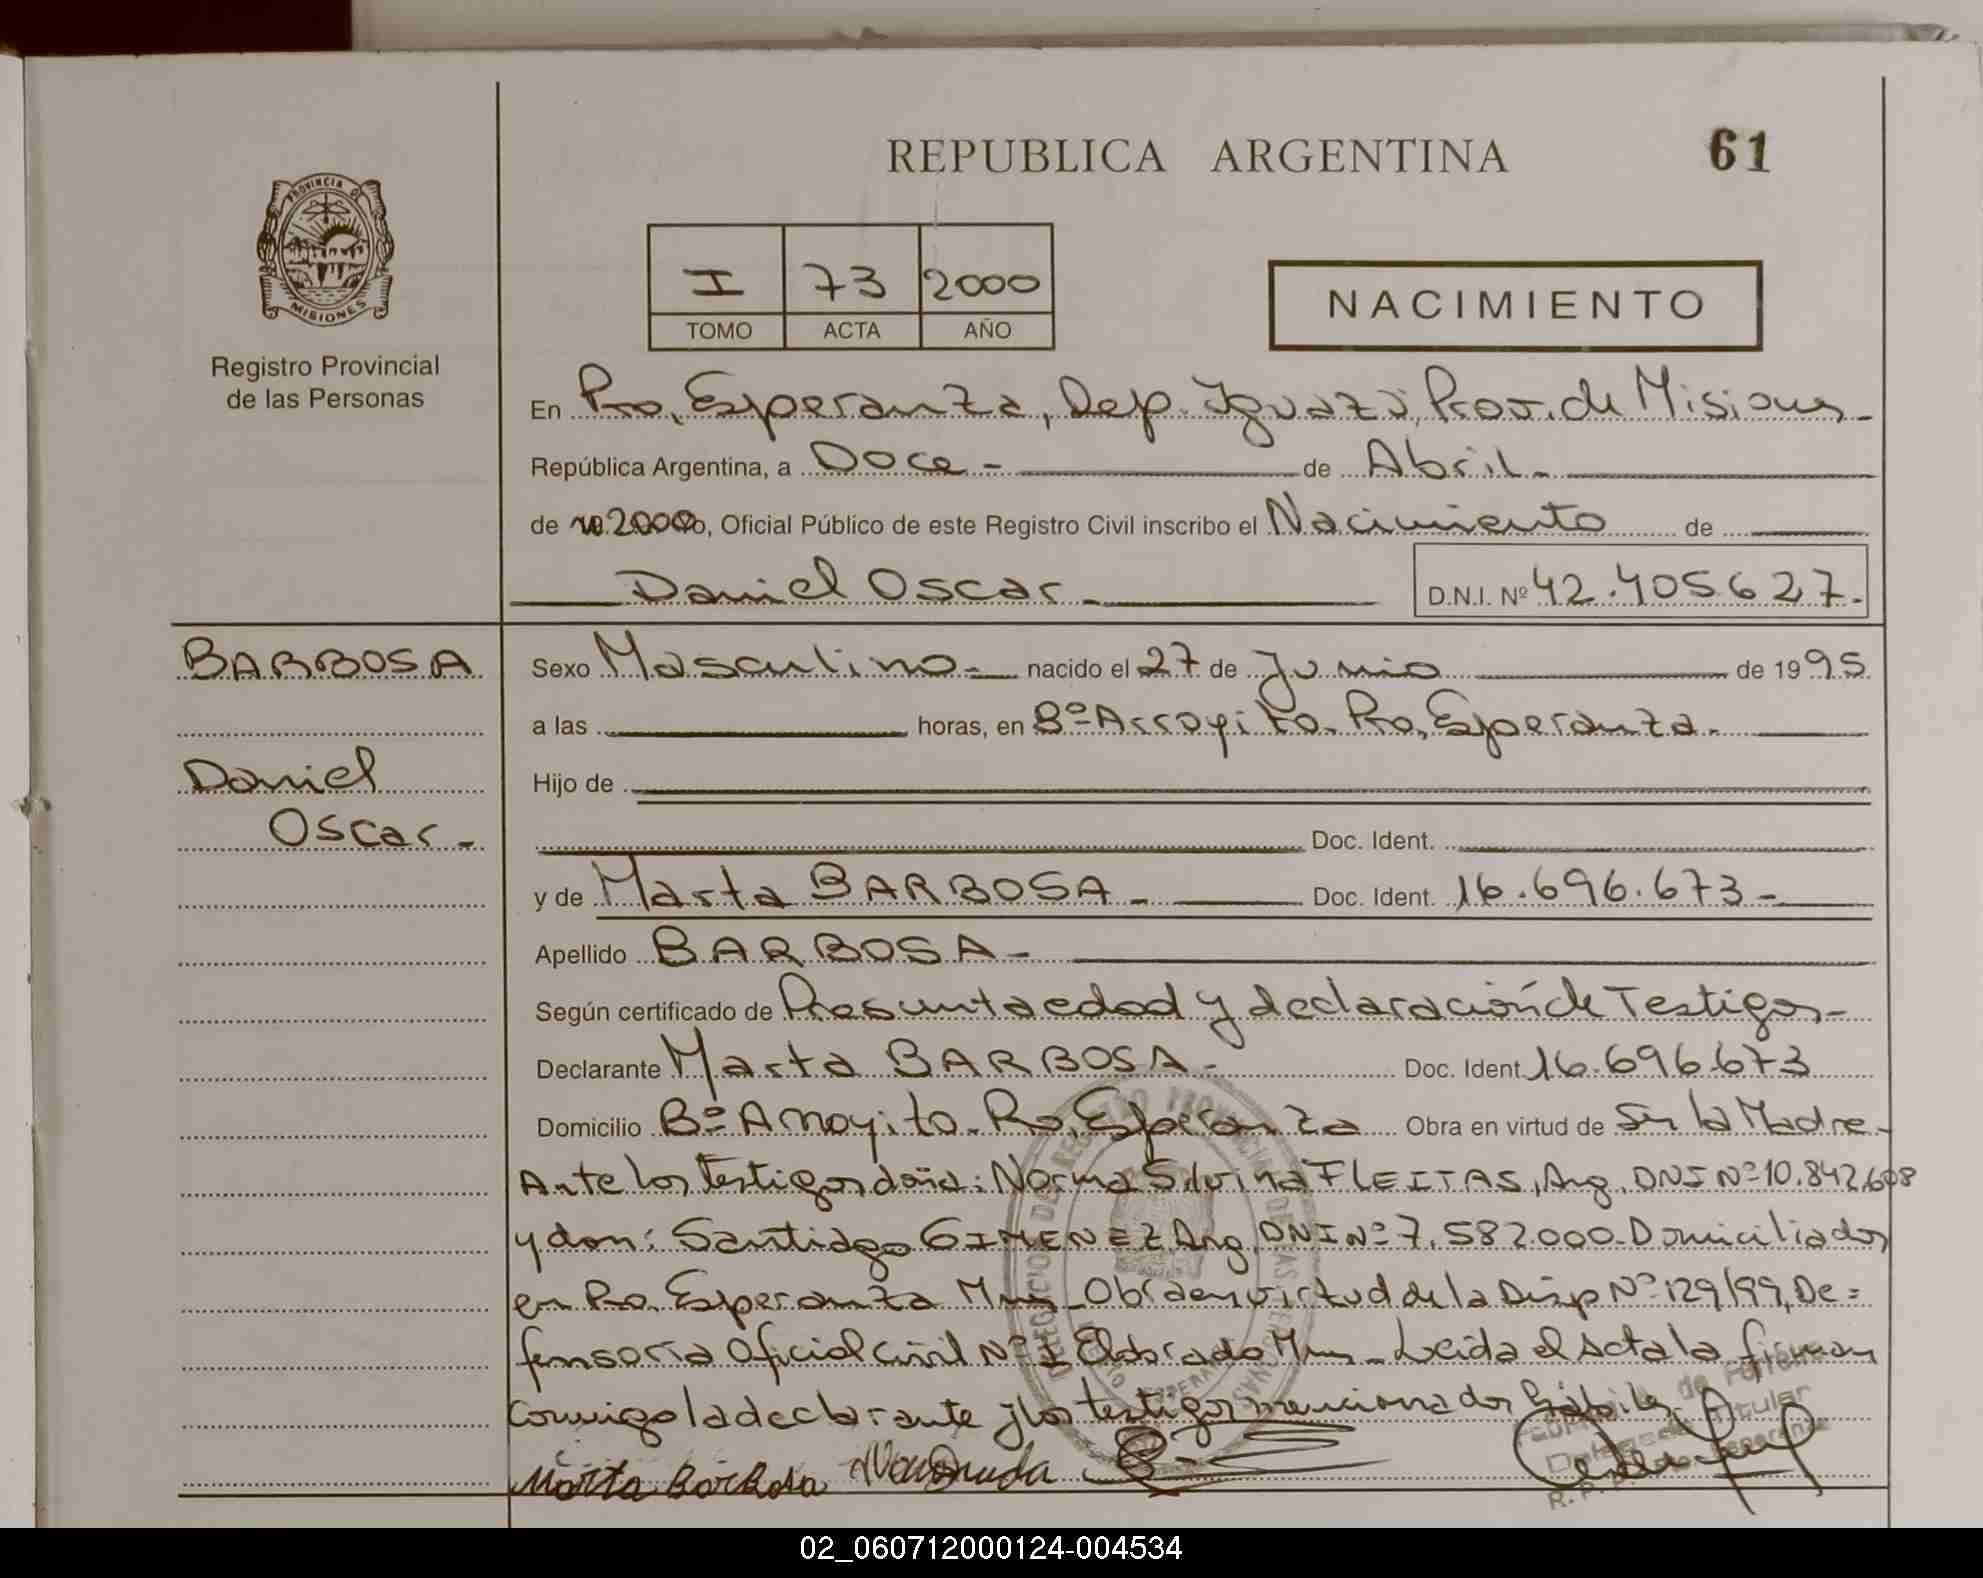 REPUBLICA ARGENTINA
61
PROVINCIA DE
MISIONES
Registro Provincial
de las Personas
I 73 2000
TOMO ACTA AÑO
NACIMIENTO
En Pto. Esperanza, Dep. Iguazú, Prov. de Misiones
República Argentina, a Doce - de Abril -
de 2000, Oficial Público de este Registro Civil inscribo el Nacimiento de
Daniel Oscar - D.N.I. Nº 42.405627.-
BARBOSA
Daniel
Oscar -
Sexo Masculino - nacido el 27 de Junio de 1995
a las horas, en Bº Arroyito - Pto. Esperanza -
Hijo de
Doc. Ident.
y de Marta BARBOSA - Doc. Ident. 16.696.673 -
Apellido BARBOSA -
Según certificado de Presunta edad y declaración de Testigos -
Declarante Marta BARBOSA - Doc. Ident. 16.696.673
Domicilio Bº Arroyito - Pto. Esperanza Obra en virtud de Ser la Madre -
Ante los testigos doña: Norma Silvina FLEITAS, Arg. DNI Nº 10.842.608
y don: Santiago GIMENEZ Arg. DNI Nº 7.582.000 - Domiciliados
en Pto. Esperanza Mnes - Obra en virtud de la Disp Nº 129/99, De=
fensoria Oficial Civil Nº 1 Eldorado Mnes - Leida el Acta la firman
conmigo la declarante y los testigos mencionados hábiles
Marta Barbosa
Delegada Titular
02_060712000124-004534